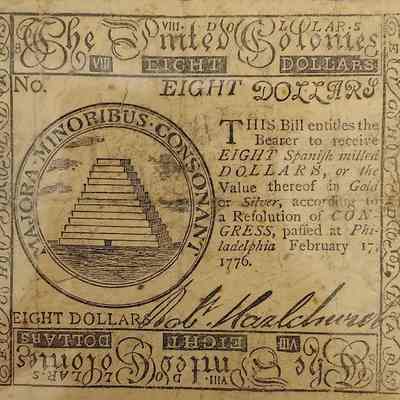 VIII·DOLLAR·S
The United Colonies
VIII EIGHT DOLLARS
No. EIGHT DOLLARS
MAJORA·MINORIBUS·CONSONANT
THIS Bill entitles the
Bearer to receive
EIGHT Spaniſh milled
DOLLARS, or the
Value thereof in Gold
or Silver, according to
a Reſolution of CON-
GRESS, paſſed at Phi-
ladelphia February 17,
1776.
EIGHT DOLLARS
VIII EIGHT DOLLARS
The United Colonies
VIII·DOLLAR·S